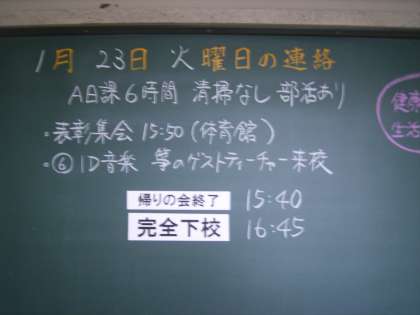 1月 23日 火曜日の連絡
A日課6時間 清掃なし 部活あり
・表彰集会 15:50(体育館)
・⑥1D音楽 箏のゲストティーチャー来校
帰りの会終了 15:40
完全下校 16:45
健康
生活